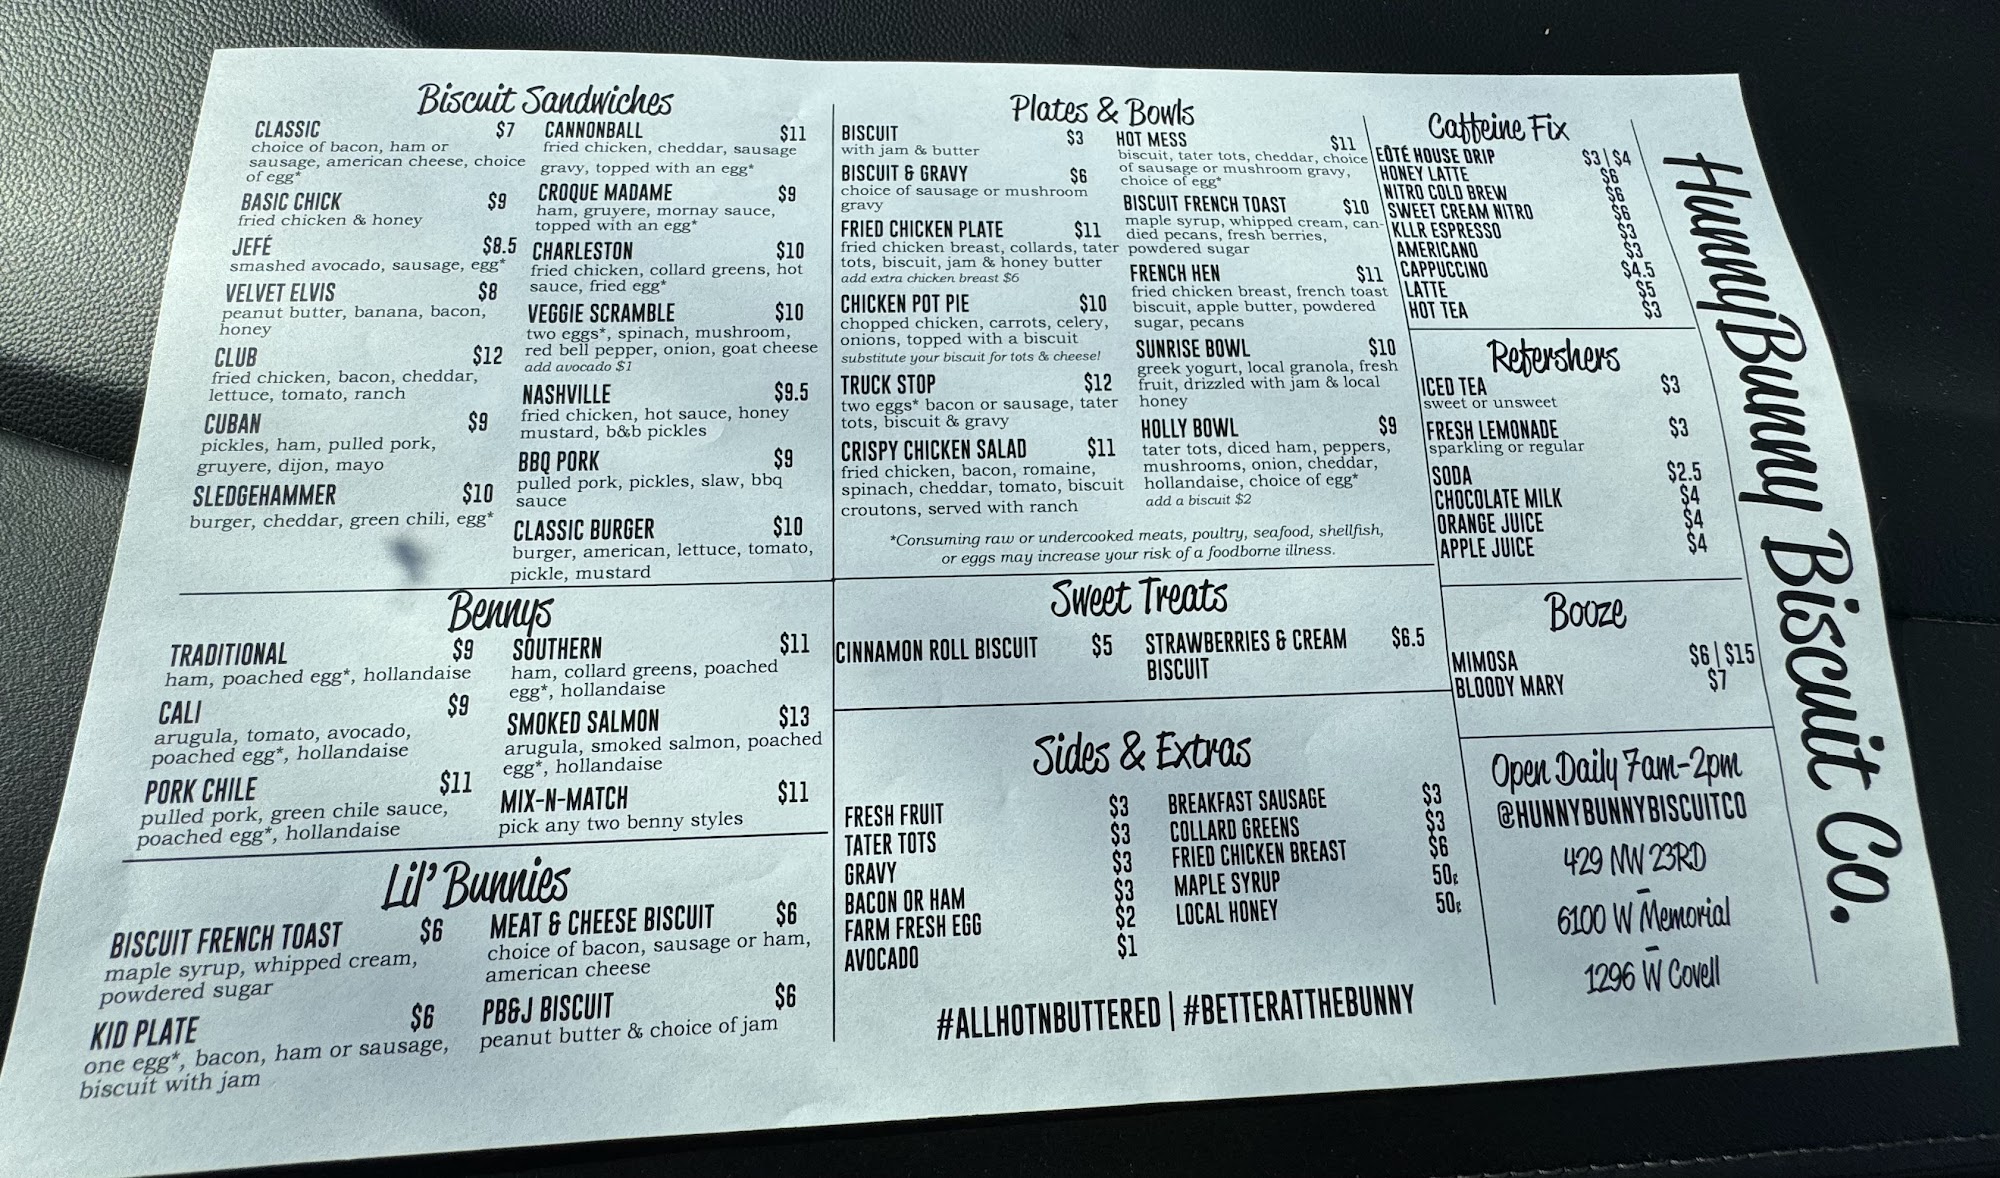 Biscuit Sandwiches
CLASSIC $7
choice of bacon, ham or
sausage, american cheese, choice
of egg*
BASIC CHICK $9
fried chicken & honey
JEFÉ $8.5
smashed avocado, sausage, egg*
VELVET ELVIS $8
peanut butter, banana, bacon,
honey
CLUB $12
fried chicken, bacon, cheddar,
lettuce, tomato, ranch
CUBAN $9
pickles, ham, pulled pork,
gruyere, dijon, mayo
SLEDGEHAMMER $10
burger, cheddar, green chili, egg*
CANNONBALL $11
fried chicken, cheddar, sausage
gravy, topped with an egg*
CROQUE MADAME $9
ham, gruyere, mornay sauce,
topped with an egg*
CHARLESTON $10
fried chicken, collard greens, hot
sauce, fried egg*
VEGGIE SCRAMBLE $10
two eggs*, spinach, mushroom,
red bell pepper, onion, goat cheese
add avocado $1
NASHVILLE $9.5
fried chicken, hot sauce, honey
mustard, b&b pickles
BBQ PORK $9
pulled pork, pickles, slaw, bbq
sauce
CLASSIC BURGER $10
burger, american, lettuce, tomato,
pickle, mustard
Bennys
TRADITIONAL $9
ham, poached egg*, hollandaise
CALI $9
arugula, tomato, avocado,
poached egg*, hollandaise
PORK CHILE $11
pulled pork, green chile sauce,
poached egg*, hollandaise
SOUTHERN $11
ham, collard greens, poached
egg*, hollandaise
SMOKED SALMON $13
arugula, smoked salmon, poached
egg*, hollandaise
MIX-N-MATCH $11
pick any two benny styles
Lil' Bunnies
BISCUIT FRENCH TOAST $6
maple syrup, whipped cream,
powdered sugar
KID PLATE $6
one egg*, bacon, ham or sausage,
biscuit with jam
MEAT & CHEESE BISCUIT $6
choice of bacon, sausage or ham,
american cheese
PB&J BISCUIT $6
peanut butter & choice of jam
Plates & Bowls
BISCUIT $3
with jam & butter
BISCUIT & GRAVY $6
choice of sausage or mushroom
gravy
FRIED CHICKEN PLATE $11
fried chicken breast, collards, tater
tots, biscuit, jam & honey butter
add extra chicken breast $6
CHICKEN POT PIE $10
chopped chicken, carrots, celery,
onions, topped with a biscuit
substitute your biscuit for tots & cheese!
TRUCK STOP $12
two eggs* bacon or sausage, tater
tots, biscuit & gravy
CRISPY CHICKEN SALAD $11
fried chicken, bacon, romaine,
spinach, cheddar, tomato, biscuit
croutons, served with ranch
HOT MESS $11
biscuit, tater tots, cheddar, choice
of sausage or mushroom gravy,
choice of egg*
BISCUIT FRENCH TOAST $10
maple syrup, whipped cream, can-
died pecans, fresh berries,
powdered sugar
FRENCH HEN $11
fried chicken breast, french toast
biscuit, apple butter, powdered
sugar, pecans
SUNRISE BOWL $10
greek yogurt, local granola, fresh
fruit, drizzled with jam & local
honey
HOLLY BOWL $9
tater tots, diced ham, peppers,
mushrooms, onion, cheddar,
hollandaise, choice of egg*
add a biscuit $2
*Consuming raw or undercooked meats, poultry, seafood, shellfish,
or eggs may increase your risk of a foodborne illness.
Sweet Treats
CINNAMON ROLL BISCUIT $5
STRAWBERRIES & CREAM $6.5
BISCUIT
Sides & Extras
FRESH FRUIT $3
TATER TOTS $3
GRAVY $3
BACON OR HAM $3
FARM FRESH EGG $2
AVOCADO $1
BREAKFAST SAUSAGE $3
COLLARD GREENS $3
FRIED CHICKEN BREAST $6
MAPLE SYRUP 50¢
LOCAL HONEY 50¢
#ALLHOTNBUTTERED | #BETTERATTHEBUNNY
Caffeine Fix
EÔTÉ HOUSE DRIP $3 | $4
HONEY LATTE $6
NITRO COLD BREW $6
SWEET CREAM NITRO $6
KLLR ESPRESSO $3
AMERICANO $3
CAPPUCCINO $4.5
LATTE $5
HOT TEA $3
Refershers
ICED TEA $3
sweet or unsweet
FRESH LEMONADE $3
sparkling or regular
SODA $2.5
CHOCOLATE MILK $4
ORANGE JUICE $4
APPLE JUICE $4
Booze
MIMOSA $6 | $15
BLOODY MARY $7
Open Daily 7am-2pm
@HUNNYBUNNYBISCUITCO
429 NW 23RD
-
6100 W Memorial
-
1296 W Covell
HunnyBunny Biscuit Co.